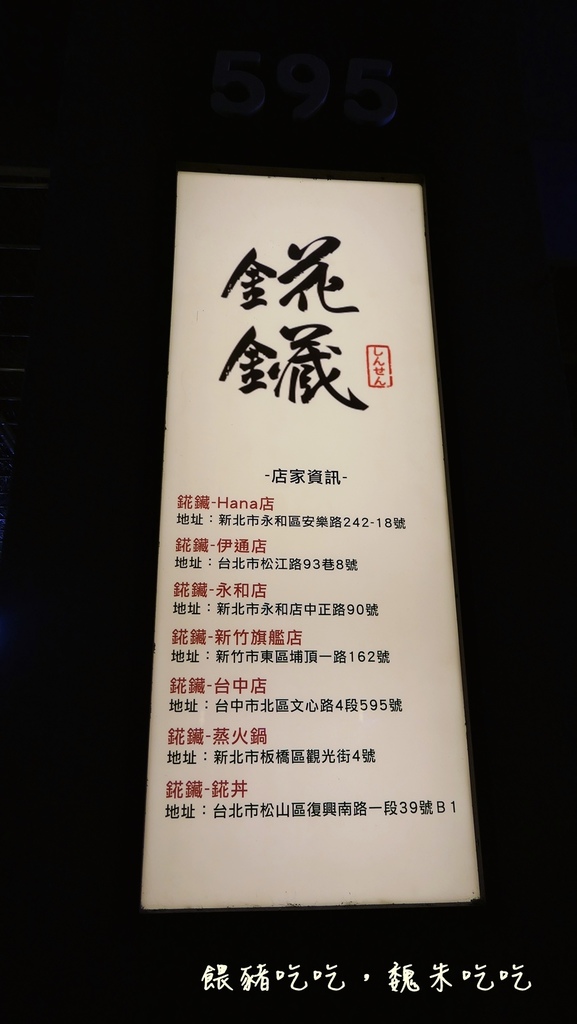 595
錵
鑶
しんせん
-店家資訊-
錵鑶-Hana店
地址：新北市永和區安樂路242-18號
錵鑶-伊通店
地址：台北市松江路93巷8號
錵鑶-永和店
地址：新北市永和店中正路90號
錵鑶-新竹旗艦店
地址：新竹市東區埔頂一路162號
錵鑶-台中店
地址：台中市北區文心路4段595號
錵鑶-蒸火鍋
地址：新北市板橋區觀光街4號
錵鑶-錵丼
地址：台北市松山區復興南路一段39號B1
餵豬吃吃，魏朱吃吃